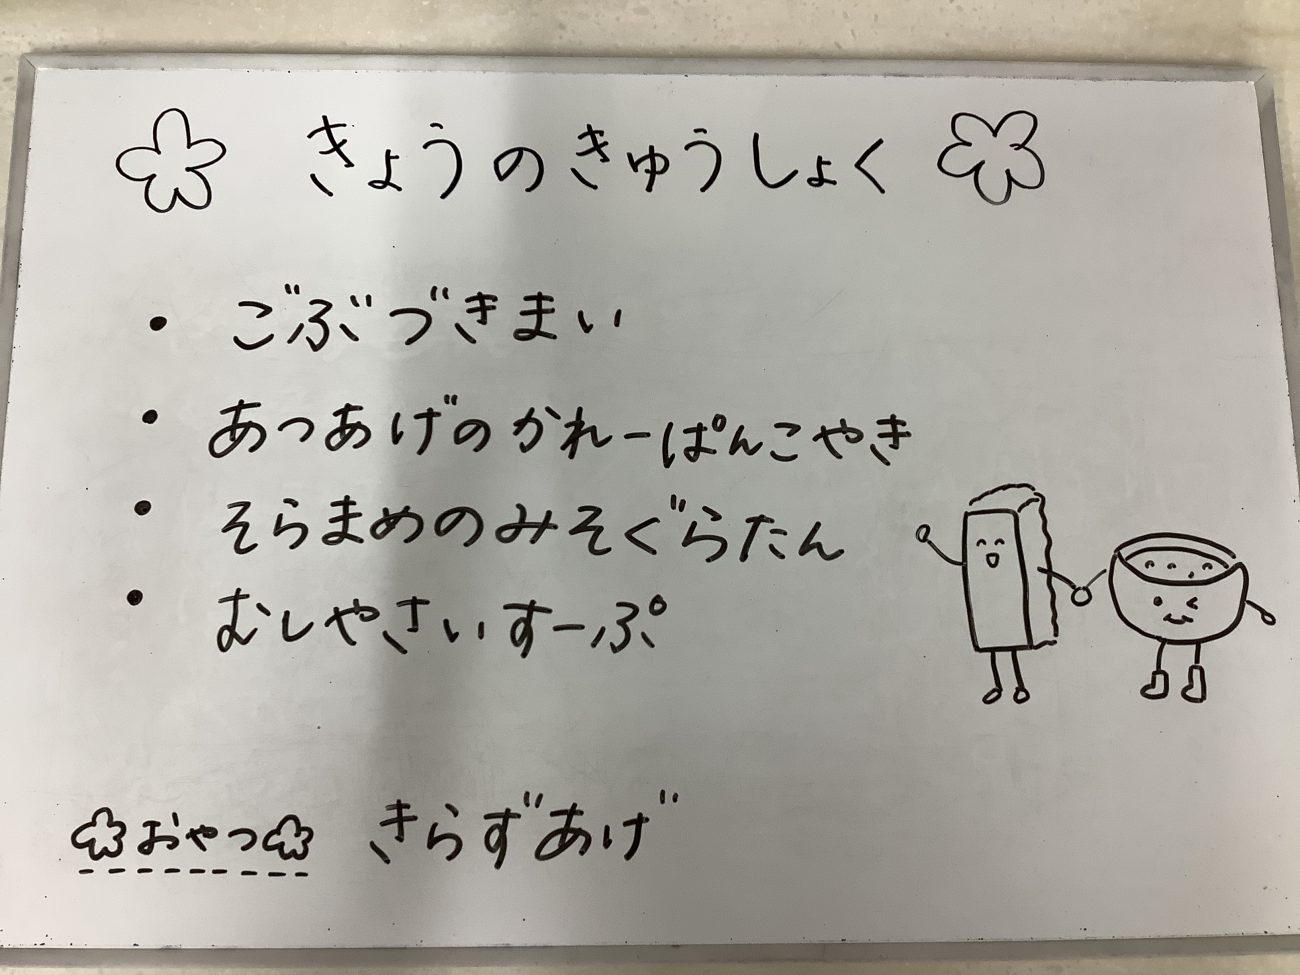 きょうのきゅうしょく
・ごぶづきまい
・あつあげのかれーぱんこやき
・そらまめのみそぐらたん
・むしやさいすーぷ
おやつ きらずあげ